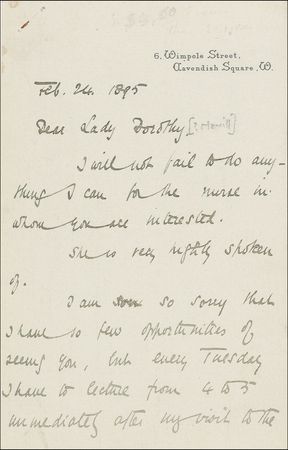 6, Wimpole Street,
Cavendish Square, W.
Feb. 24. 1895
Dear Lady Dorothy
I will not fail to do any-
thing I can for the nurse in
whom you are interested.
She is very highly spoken
of.
I am so sorry that
I have so few opportunities of
seeing you, but every Tuesday
I have to lecture from 4 to 5
immediately after my visit to the